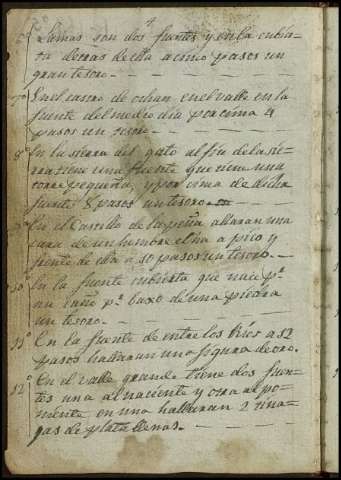 Lamas son dos fuentes y en la cubier
ta detras de ella a cinco pasos un
gran tesoro.
7º En el castro de ochan en el valle en la
fuente del medio dia por cima 4
pasos un tesoro.
8º En la sierra del gato al fin de la sie-
rra tiene una fuente que tiene una
torre pequeña, y por cima de dicha
fuente 8 pasos un tesoro.
En el Castillo de la peña allaran una
cara de un hombre hecha a pico y
frente de ella a 10 pasos un tesoro.
10º En la fuente cubierta que nace pr
un caño pr baxo de una piedra
un tesoro.
11º En la fuente de entre los Rios a 32
pasos hallaran una figura de oro.
12º En el valle grande tiene dos fuen-
tes una al naciente y otra al po-
niente en una hallaran 2 tina-
gas de plata llenas.